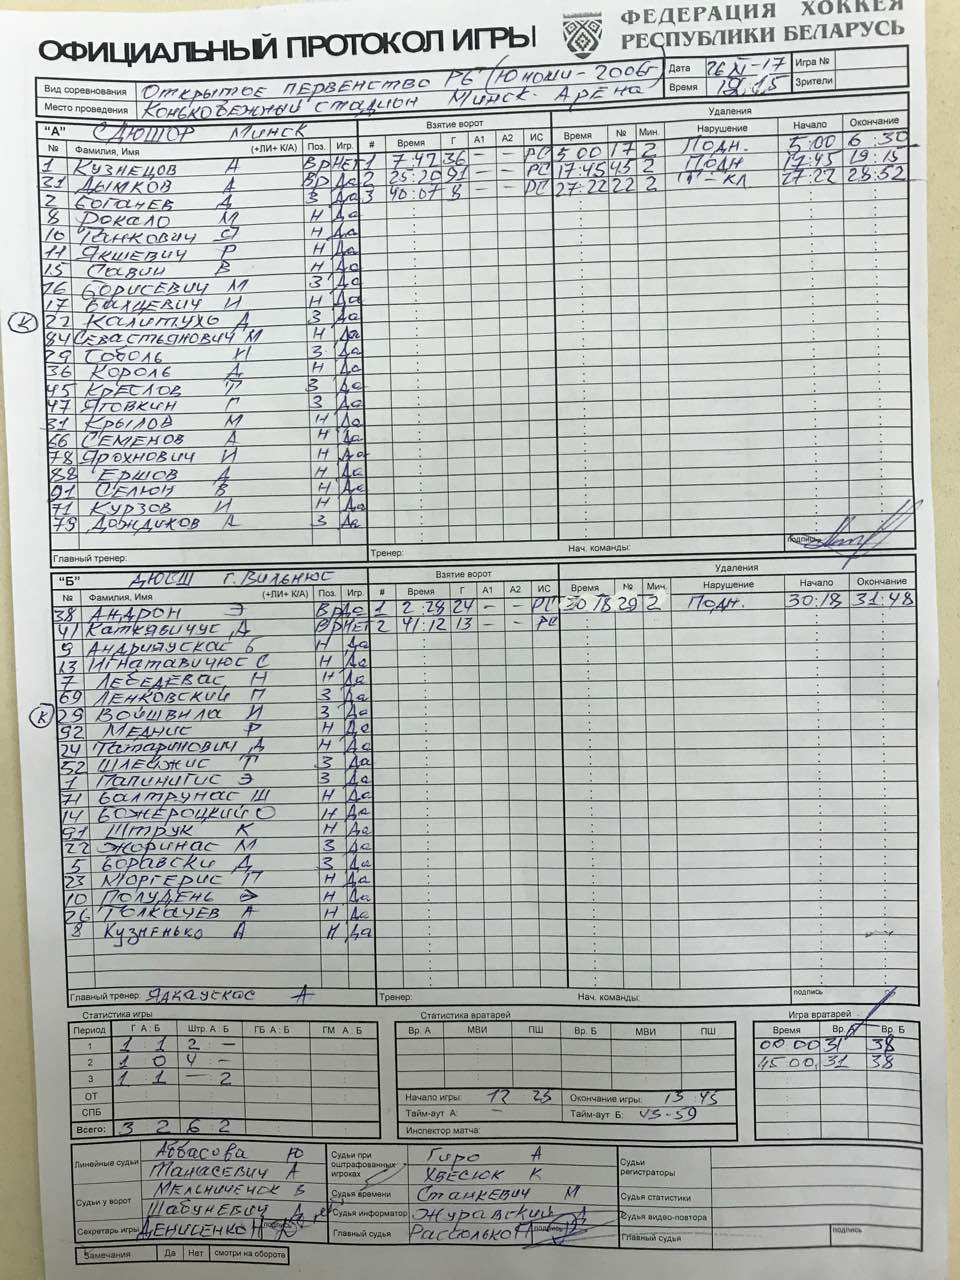 ОФИЦИАЛЬНЫЙ ПРОТОКОЛ ИГРЫ
ФЕДЕРАЦИЯ ХОККЕЯ
РЕСПУБЛИКИ БЕЛАРУСЬ
Вид соревнования Открытое первенство РБ (Юноши-2006г) Дата 26 XI-17 Игра №
Место проведения Конькобежный стадион Минск-Арена Время Зрители
"А" СДЮШОР Минск Взятие ворот Удаления
№ Фамилия, Имя (+ЛИ+ К/А) Поз. Игр. # Время Г А1 А2 ИС Время № Мин. Нарушение Начало Окончание
1 Кузнецов А Вр нет 1 7:47 36 - - РС 5 00 17 2 Подн. 5:00 6:30
31 Дымков А Вр Да 2 25:20 91 - - РС 17:45 45 2 Подн 17:45 19:15
2 Богачев Д З Да 3 40:07 8 РС 27:22 22 2 27:22 28:52
8 Рокало М Н Да
10 Танкович Я Н Да
11 Якшевич Р Н Да
15 Савин В Н Да
16 Борисевич М З Да
17 Бахцевич И Н Да
К 22 Калитухо Д З Да
84 Севастьянович М Н Да
29 Соболь И З Да
36 Король Д Н Да
45 Креслов П З Да
47 Яговкин Г З Да
51 Крылов М Н Да
66 Семенов А Н Да
78 Ярохнович И Н Да
88 Ершов Д Н Да
91 Селюн В Н Да
71 Курзов И Н Да
79 Дождиков А З Да
Главный тренер: Тренер: Нач. команды: подпись
"Б" ДЮСШ г. Вильнюс Взятие ворот Удаления
№ Фамилия, Имя (+ЛИ+ К/А) Поз. Игр. # Время Г А1 А2 ИС Время № Мин. Нарушение Начало Окончание
38 Андрон Э Вр Да 1 2:28 24 - - РС 30 18 29 2 Подн. 30:18 31:48
41 Каткявичус Д Вр нет 2 41:12 13 - - РС
9 Андрияускас Б Н Да
13 Игнатавичюс С Н Да
7 Лебедевас Н Н Да
69 Ленковский П З Да
К 29 Войшвила И З Да
92 Меднис Р Н Да
24 Татаринович Д Н Да
52 Шлейжис Т З Да
1 Папинигис Э З Да
71 Балтрунас Ш Н Да
14 Божероцкий О Н Да
91 Штрук К Н Да
22 Жоринас М З Да
5 Боравски Д З Да
23 Моргерис П Н Да
10 Полудень Э Н Да
26 Толкачев А Н Да
8 Кузненько А Н Да
Главный тренер: Ядкаускас А Тренер: Нач. команды: подпись
Статистика игры Статистика вратарей Игра вратарей
Период Г А : Б Штр. А : Б ГБ А : Б ГМ А : Б Вр. А МВИ ПШ Вр. Б МВИ ПШ Время Вр. А Вр. Б
1 1 1 2 - 00 00 31 38
2 1 0 4 - 45 00 31 38
3 1 1 - 2
ОТ Начало игры: 12 25 Окончание игры: 13 45
СПБ Тайм-аут А: - Тайм-аут Б: 43-59
Всего: 3 2 6 2 Инспектор матча:
Линейные судьи Аббасова Ю Судьи при оштрафованных игроках Гиро А Судьи регистраторы
Танасевич А Хвесюк К
Судьи у ворот Мельниченок В Судья времени Станкевич М Судья статистики
Шабуневич А Судья информатор Журавский А Судья видео-повтора
Секретарь игры Денисенко Н подпись Главный судья Рассолько подпись Главный судья подпись
Замечания Да Нет смотри на обороте